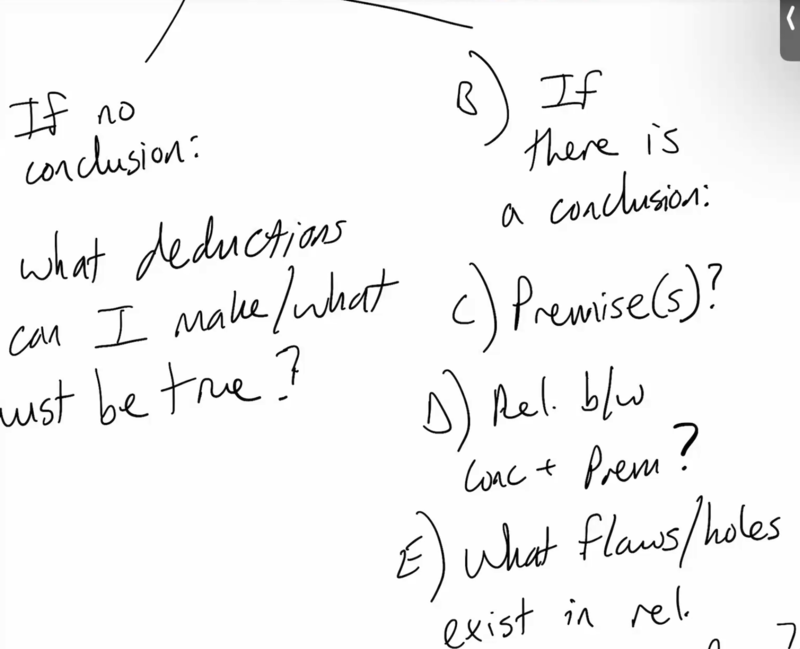 If no
conclusion:
what deductions
can I make/what
ust be true?
B) If
there is
a conclusion:
C) Premise(s)?
D) Rel. b/w
Conc + Prem?
E) What flaws/holes
exist in rel.
?